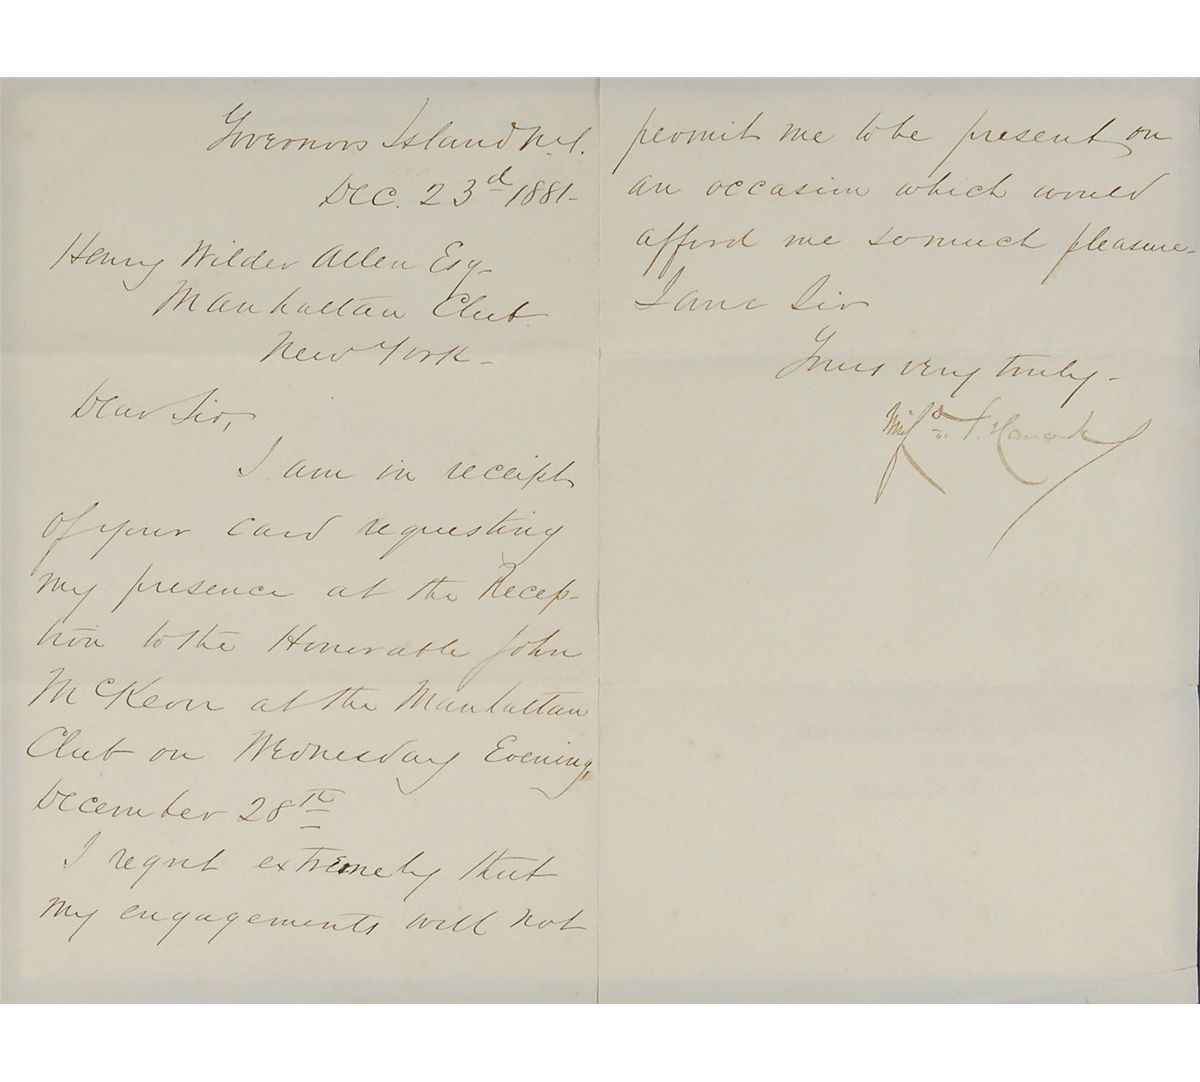 Governors Island N.Y.
Dec. 23d 1881-
Henry Wilder Allen Esq-
Manhattan Club
New York-
Dear Sir,
I am in receipt
of your card requesting
my presence at the Recep-
tion to the Honorable John
McKeon at the Manhattan
Club on Wednesday Evening,
December 28Th
I regret extremely that
my engagements will not
permit me to be present on
an occasion which would
afford me so much pleasure-
I am Sir
Yours very truly-
Winfd S. Hancock